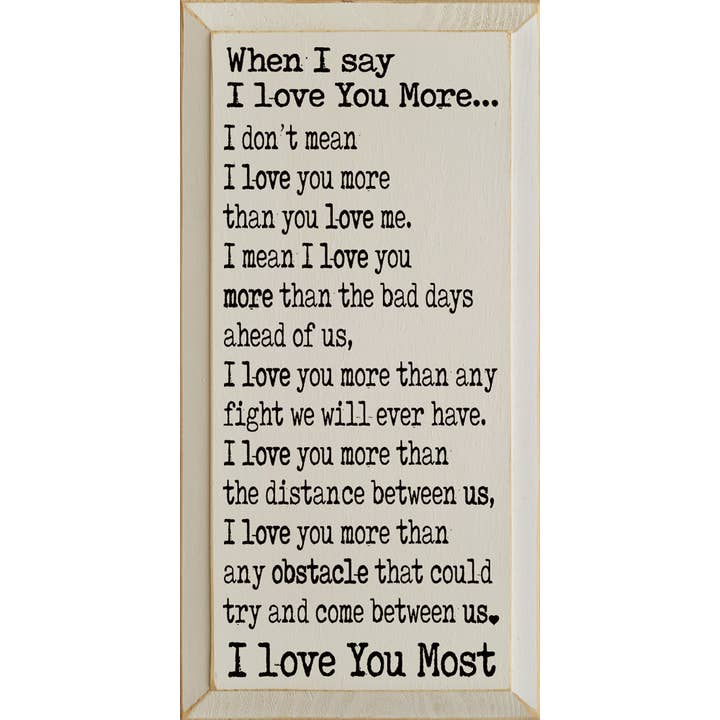 When I say
I love You More...
I don't mean
I love you more
than you love me.
I mean I love you
more than the bad days
ahead of us,
I love you more than any
fight we will ever have.
I love you more than
the distance between us,
I love you more than
any obstacle that could
try and come between us.
I love You Most